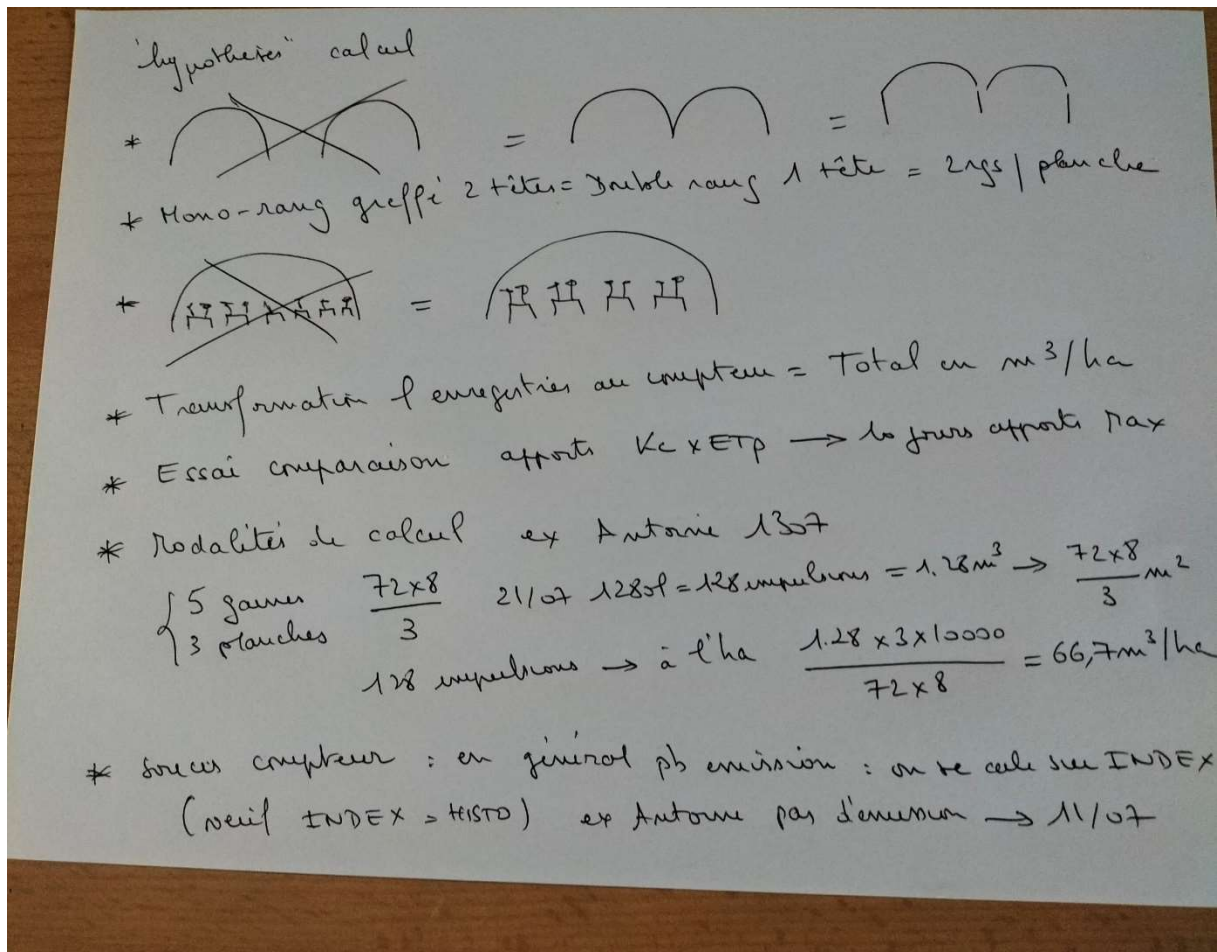 "hypothèses" calcul
* = =
* Mono-rang greffé 2 têtes = Double rang 1 tête = 2rgs / planche
* =
* Transformation l enregistrés au compteur = Total en m³/ha
* Essai comparaison apports Kc x ETp → 10 jours apports Max
* Modalités de calcul ex Antoine 1307
5 gaines 72x8/3 21/07 1280l = 128 impulsions = 1.28m³ → 72x8/3 m²
3 planches
128 impulsions → à l'ha 1.28 x 3 x 10000 / 72 x 8 = 66,7m³/ha
* Soucis compteur : en général pb emission : on se cale sur INDEX
(vérif INDEX = HISTO) ex Antoine pas d'emission → 11/07